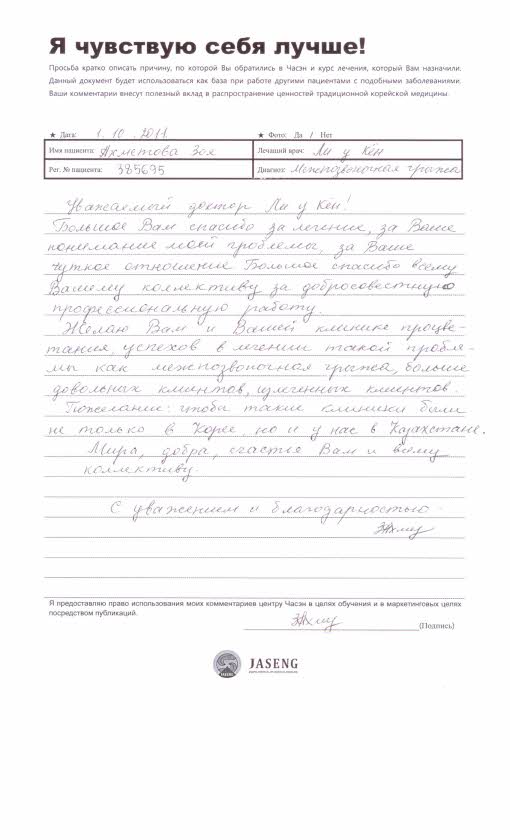 Я чувствую себя лучше!
Просьба кратко описать причину, по которой Вы обратились в Часэн и курс лечения, который Вам назначили.
Данный документ будет использоваться как база при работе другими пациентами с подобными заболеваниями.
Ваши комментарии внесут полезный вклад в распространение ценностей традиционной корейской медицины.
★ Дата: 1. 10. 2011 ★ Фото: Да / Нет
Имя пациента: Ахметова Зоя Лечащий врач: Ли у Кён
Рег. № пациента: 385695 Диагноз: Межпозвоночная грыжа
Уважаемый доктор Ли у Кен!
Большое Вам спасибо за лечение, за Ваше
понимание моей проблемы, за Ваше
чуткое отношение Большое спасибо всему
Вашему коллективу за добросовестную
профессиональную работу.
Желаю Вам и Вашей клинике процве-
тания, успехов в лечении такой пробле-
мы как межпозвоночная грыжа, больше
довольных клиентов, излеченных клиентов.
Пожелание: чтобы такие клиники были
не только в Корее, но и у нас в Казахстане.
Мира, добра, счастья Вам и всему
коллективу.
С уважением и благодарностью
Я предоставляю право использования моих комментариев центру Часэн в целях обучения и в маркетинговых целях
посредством публикаций.
(Подпись)
JASENG